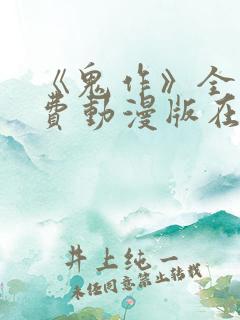 《鬼作》全
費動漫版在
井上纯一
未经同意禁止转载